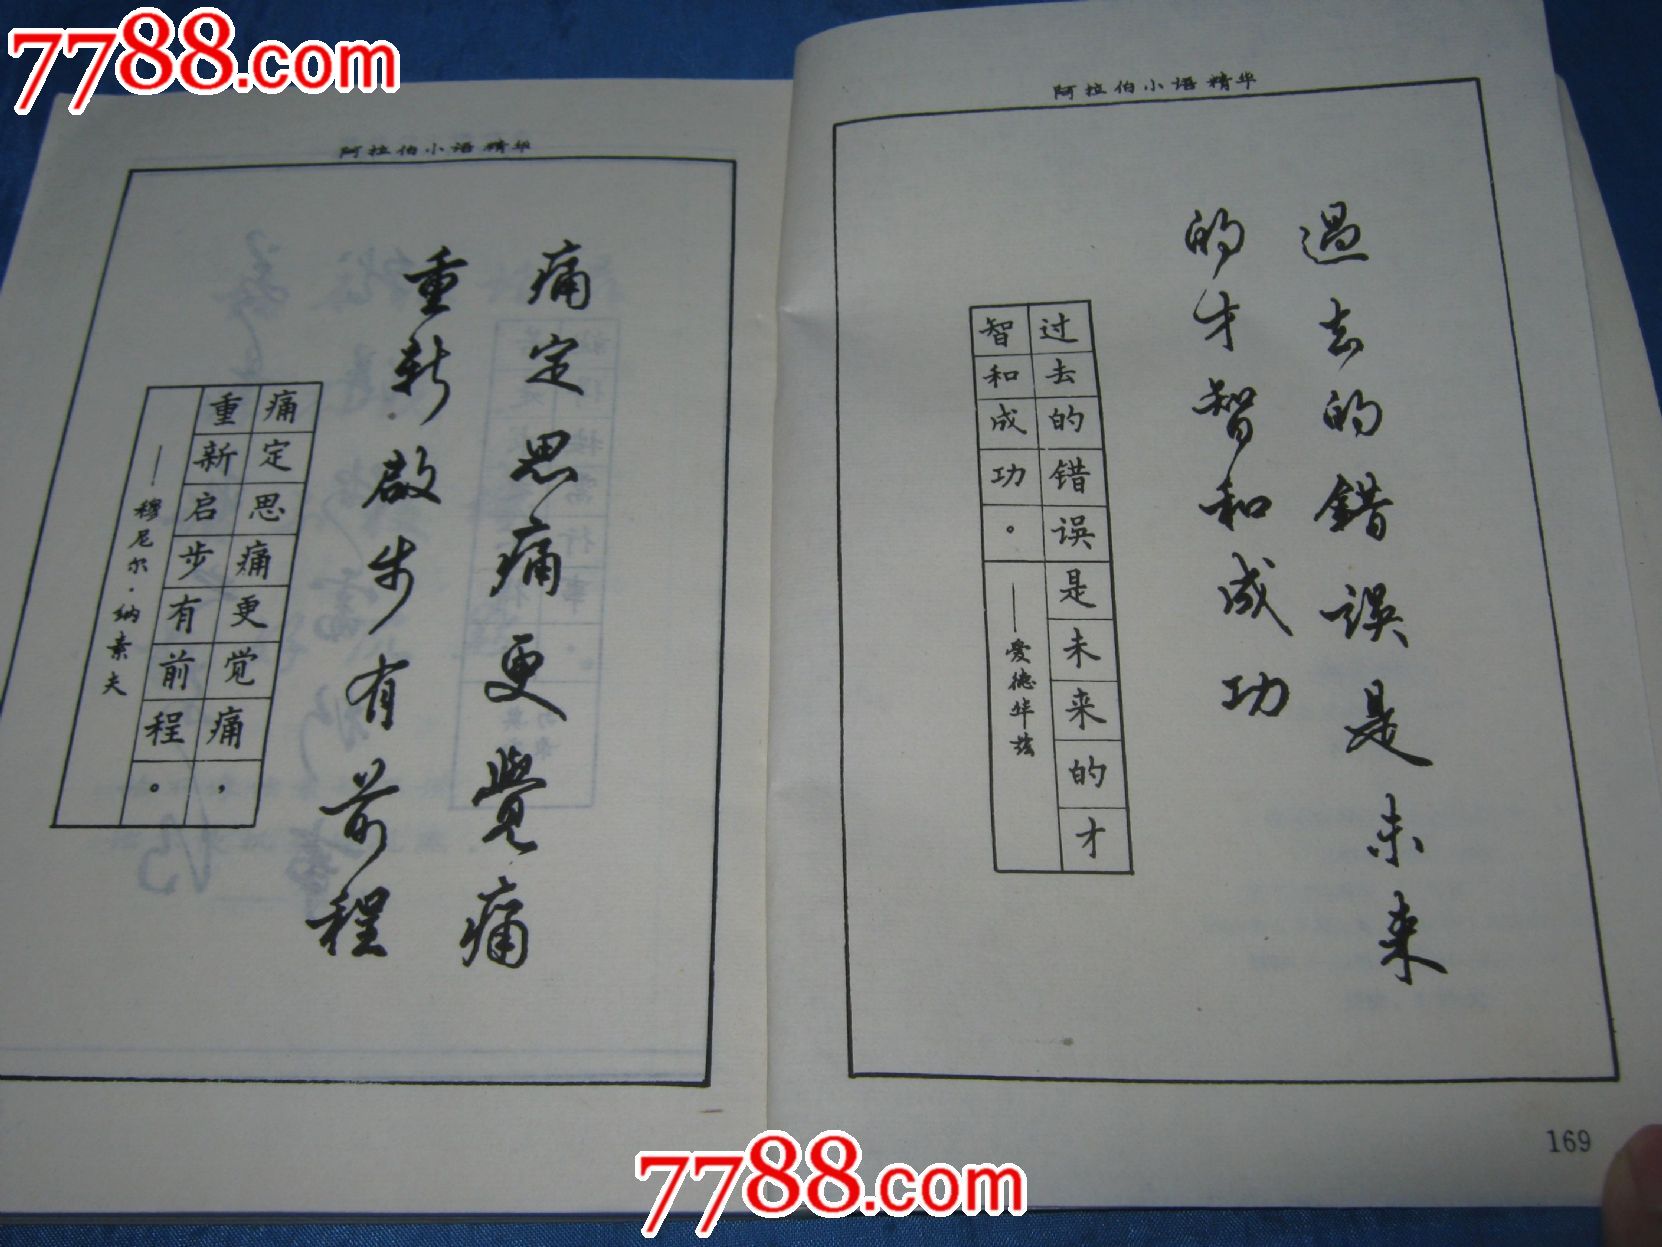 7788.com
阿拉伯小语精华
痛定思痛更覺痛
重新啟步有前程
痛定思痛更觉痛，
重新启步有前程。
——穆尼尔·纳素夫
阿拉伯小语精华
過去的錯誤是未来
的才智和成功
过去的错误是未来的才
智和成功。
——爱德华兹
169
7788.com